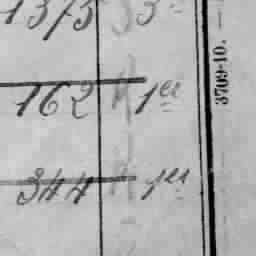 1373 3
162 1er
344 1er
3709-10.